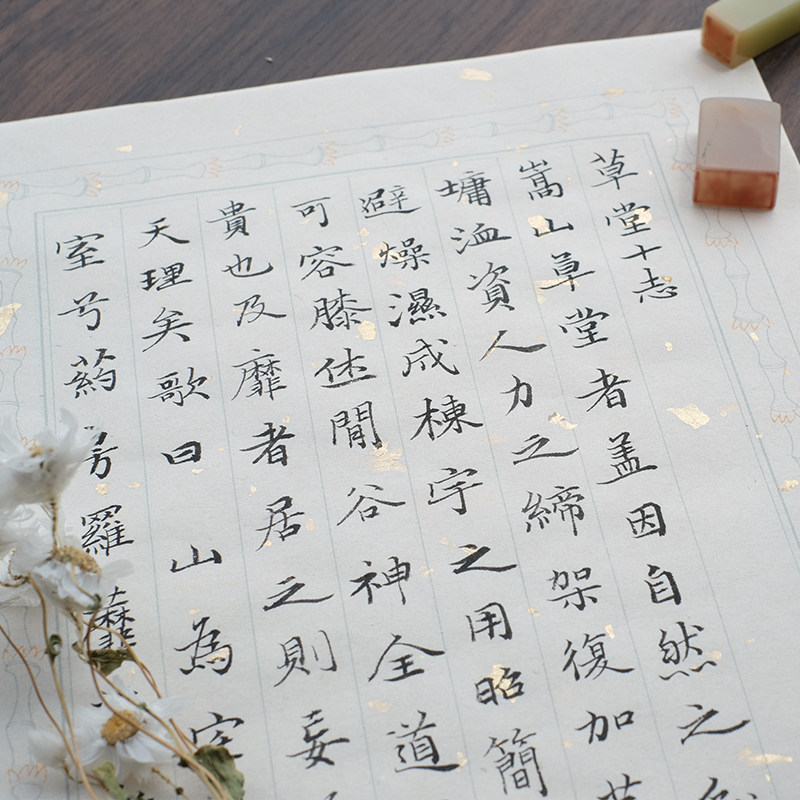 草堂十志
嵩山草堂者盖因自然之
墉洫資人力之締架復加茅
避燥濕成棟宇之用昭簡
可容膝休閒谷神全道
貴也及靡者居之則妄
天理矣歌曰 山為宅
室兮葯房羅蘼